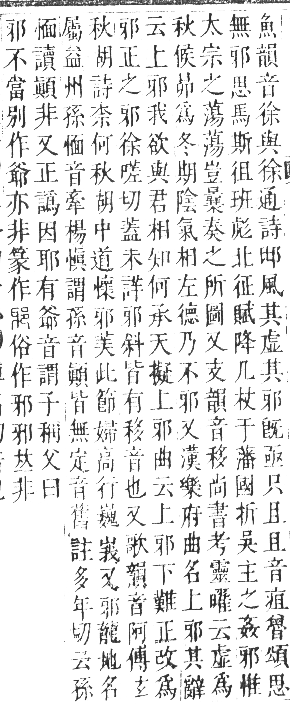 魚韻音徐與徐通詩邶風其虛其邪旣亟只且且音疽魯頌思
無邪思馬斯徂班彪北征賦降几杖于藩國折吳主之姦邪惟
太宗之蕩蕩豈曩奏之所圖又支韻音移尚書考靈曜云虛爲
秋候昴爲冬期陰氣相左德乃不邪又漢樂府曲名上邪其辭
云上邪我欲與君相知何承天擬上邪曲云上邪下難正改爲
邪正之邪徐嗟切蓋未詳邪斜皆有移音也又歌韻音阿傅玄
秋胡詩柰何秋胡中道懷邪美此節婦高行巍峩又邪龍地名
屬益州孫愐音牽楊愼謂孫音顚皆無定音舊註多年切云孫
愐讀顚非又正譌因耶有爺音謂子稱父曰
邪不當別作爺亦非篆作 俗作邪邪𠀤非